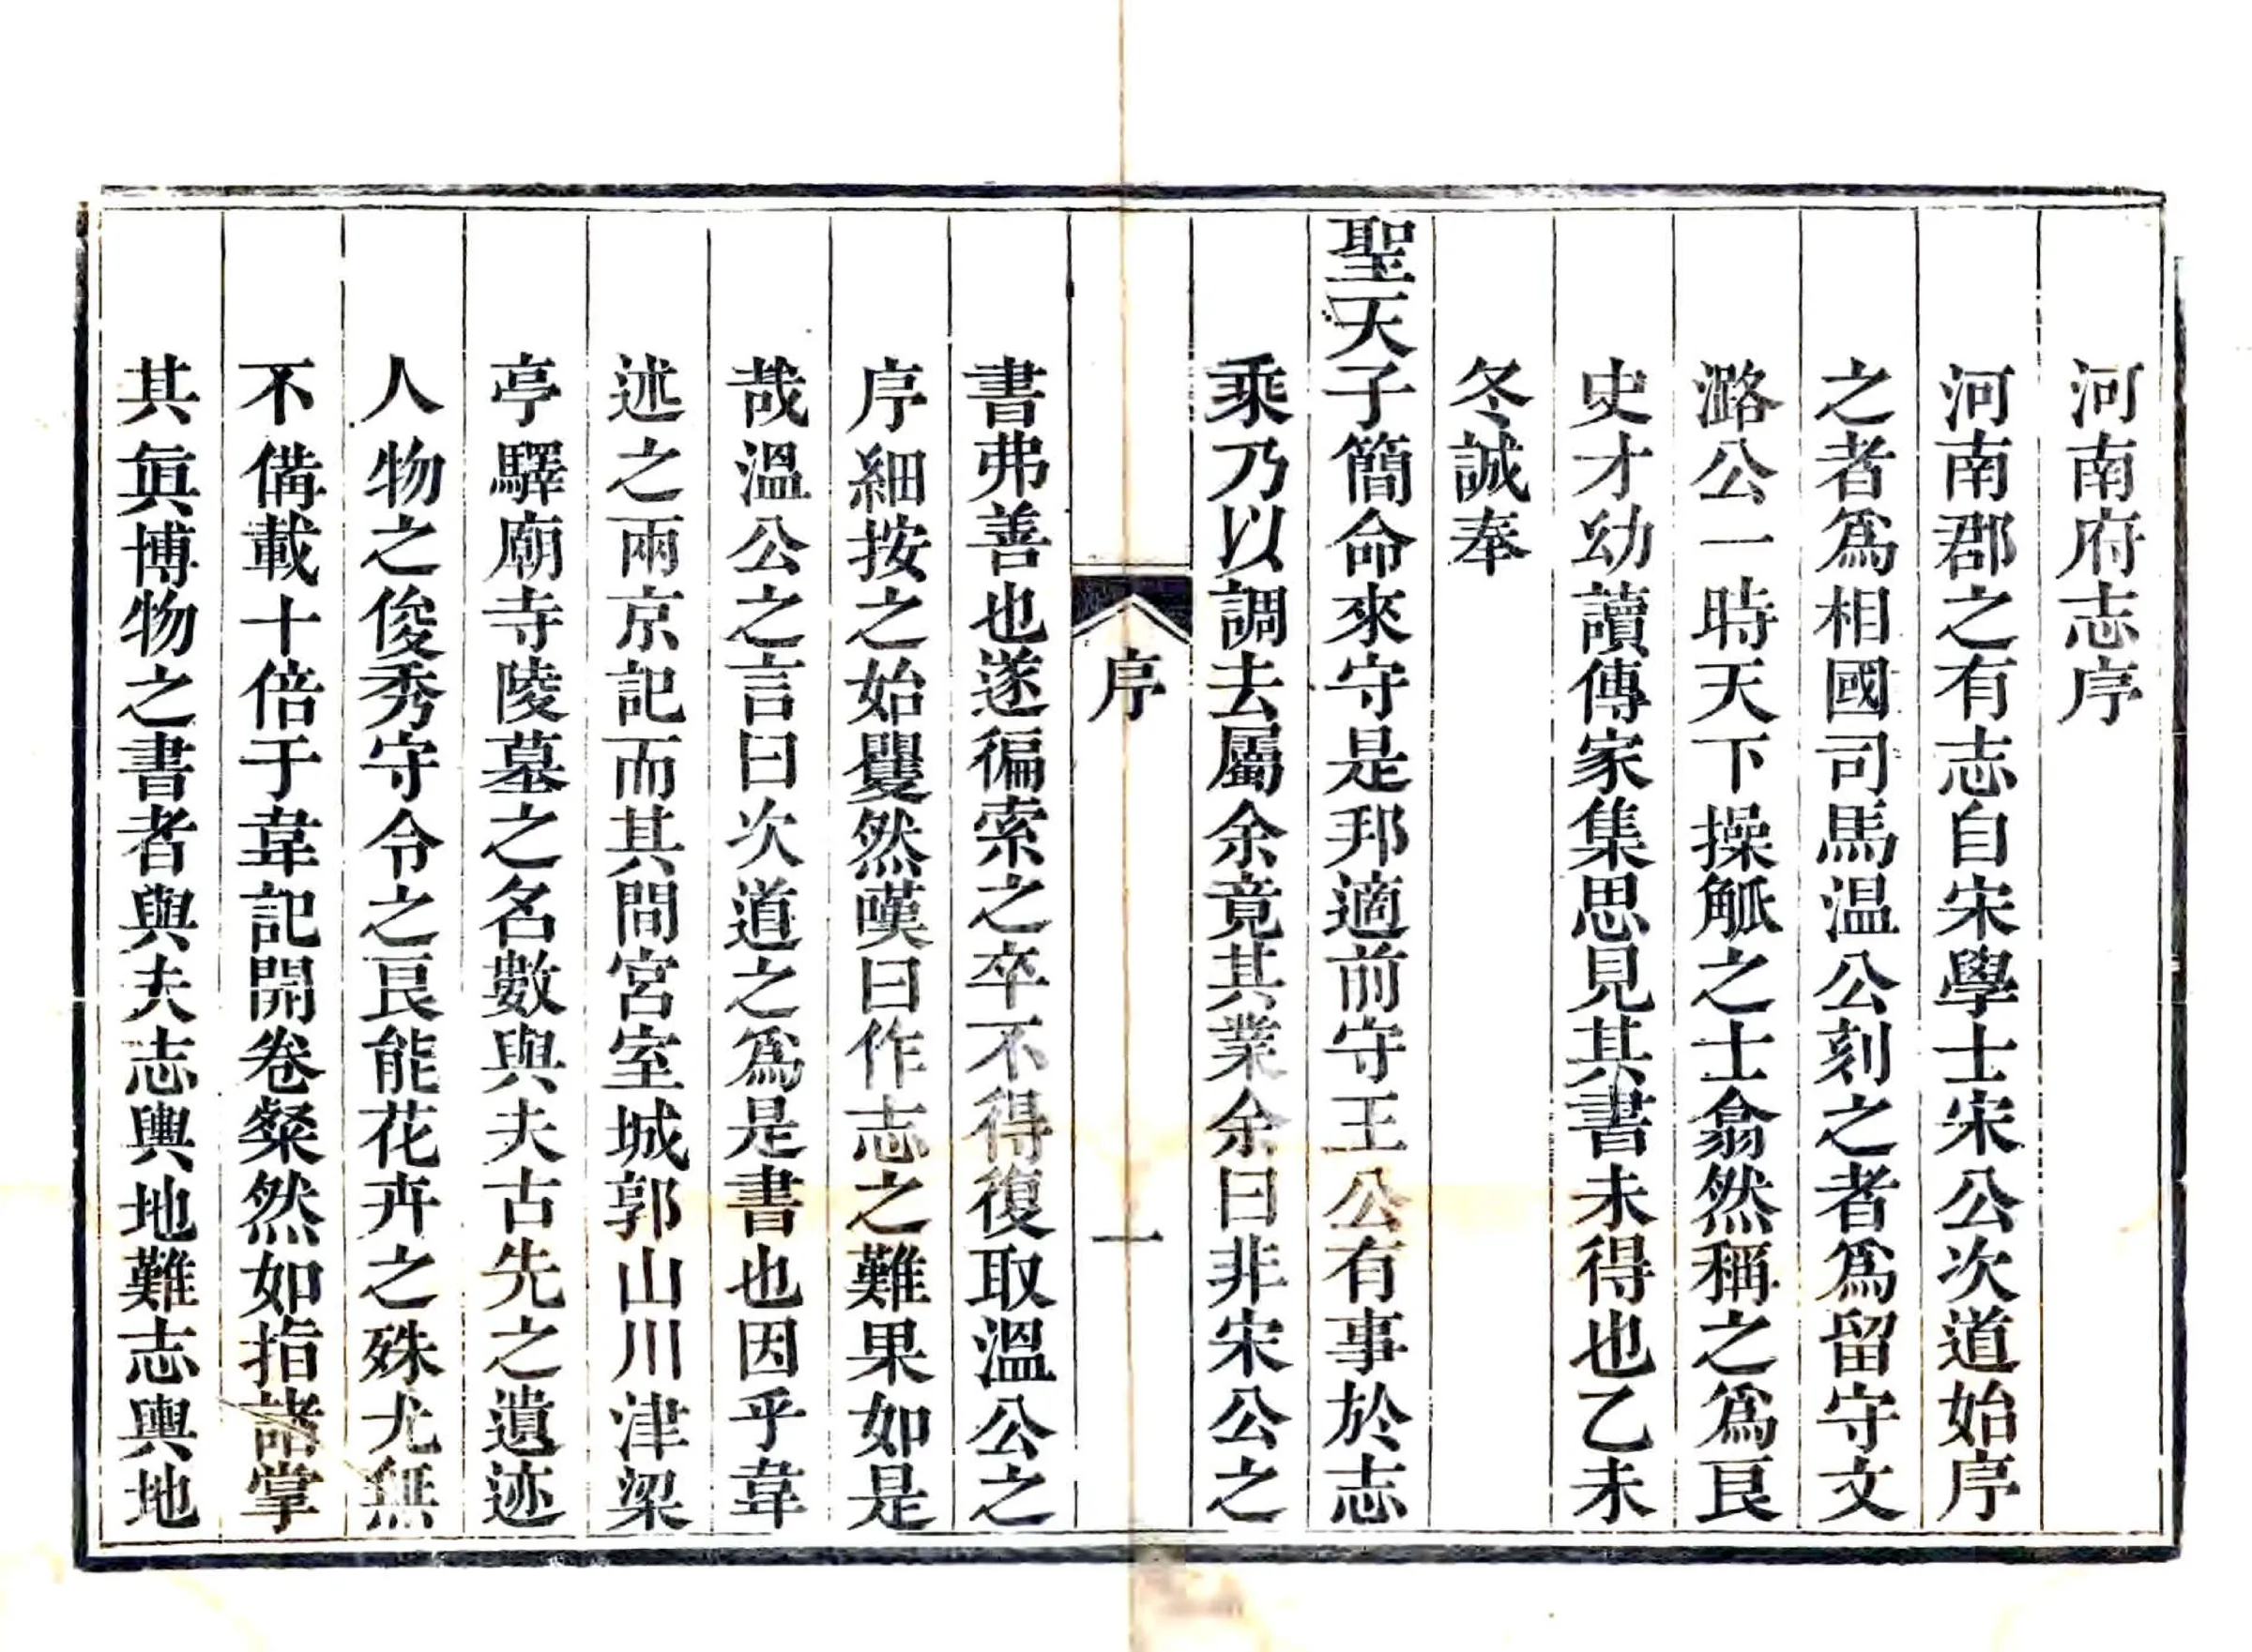 河南府志序
河南郡之有志自宋學士宋公次道始序
之者爲相國司馬温公刻之者爲留守文
潞公一時天下操觚之士翕然稱之爲良
史才幼讀傳家集思見其書未得也乙未
冬誠奉
聖天子簡命來守是邦適前守王公有事於志
乘乃以調去屬余竟其業余曰非宋公之
序
一
書弗善也遂徧索之卒不得復取溫公之
序細按之始矍然嘆曰作志之難果如是
哉溫公之言曰次道之爲是書也因乎韋
述之兩京記而其間宮室城郭山川津梁
亭驛廟寺陵墓之名數與夫古先之遺迹
人物之俊秀守令之良能花卉之殊尤無
不備載十倍于韋記開卷粲然如指諸掌
其眞博物之書者與夫志輿地難志輿地